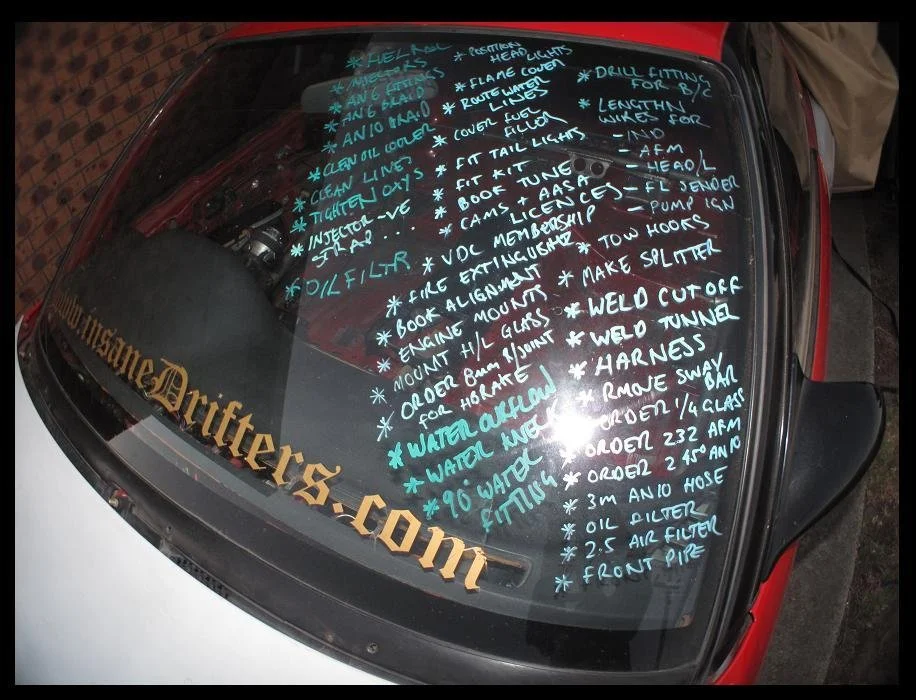 * FUEL RAIL
* INJECTORS
* AN6 FITTINGS
* AN6 BRAID
* AN10 BRAID
* CLEN OIL COOLER
* CLEAN LINES
* TIGHTEN OXYS
* INJECTOR -VE
STRAP ...
* OIL FILTR
* POSITION
HEAD LIGHTS
* FLAME COVER
* ROUTE WATER
LINES
* COVER FUEL
FILLER
* FIT TAIL LIGHTS
* FIT KIT
* BOOK TUNE
* CAMS + AASA
LICENCES
* VDC MEMBERSHIP
* FIRE EXTINGUSHR
* BOOK ALIGNMENT
* ENGINE MOUNTS
* MOUNT H/L GLASS
* ORDER 8mm R/JOINT
FOR HBRAKE
* WATER OVRFLOW
* WATER NECK
* 90° WATER
FITTING
* DRILL FITTING
FOR B/C
* LENGTHN
WIRES FOR
- NO
- AFM
- HEAD/L
- FL SENDER
- PUMP IGN
* TOW HOOKS
* MAKE SPLITTER
* WELD CUT OFF
* WELD TUNNEL
* HARNESS
* RMOVE SWAY
BAR
ORDER 1/4 GLASS
* ORDER 232 AFM
* ORDER 2 45° AN10
* 3m AN10 HOSE
* OIL FILTER
* 2.5 AIR FILTER
* FRONT PIPE
www.insaneDrifters.com